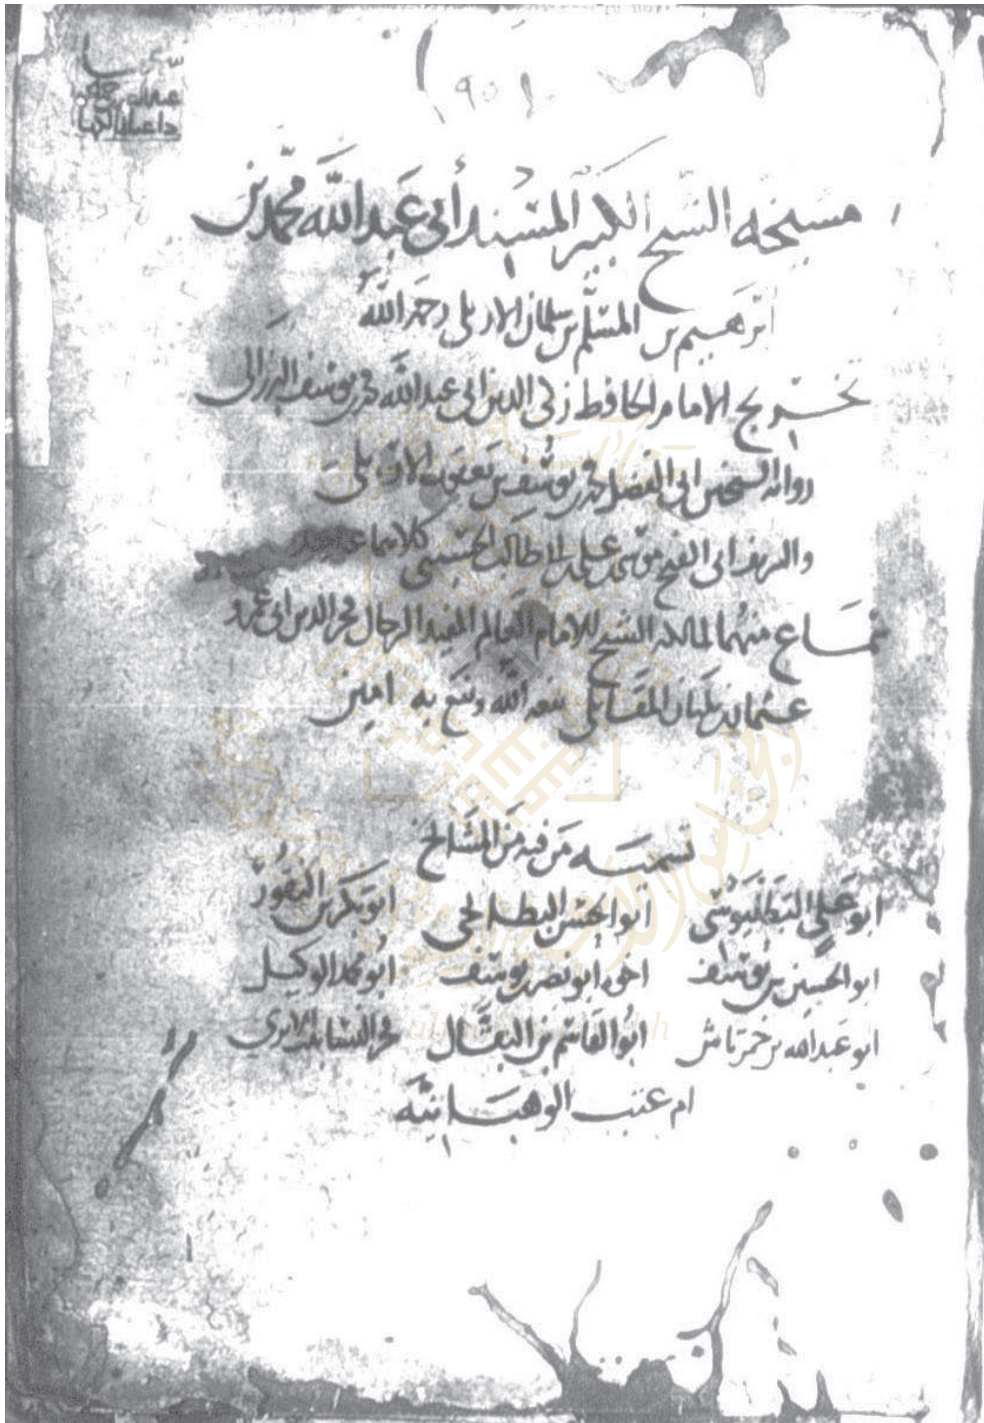 (٩٥)
مشيخة الشيخ الكبير المسند أبي عبد الله محمد بن
ابرهيم بن المسلم بن سلمان الاربلي رحمه الله
تخريج الامام الحافظ زكي الدين ابي عبد الله محمد بن يوسف البرزالي
رواية الشيخين ابي الفضل محمد بن يوسف بن يعقوب الاربلي
والشريف ابي الفتح موسى بن علي بن ابي طالب الحسيني كلاهما عنه
سماع منهما لمالكه الشيخ الامام العالم المفيد الرحال فخر الدين ابي عمرو
عثمان بن بلبان المقاتلي نفعه الله ونفع به امين
تسمية من فيه من المشايخ
ابو علي البطليوسي ابو الحسن البطائحي ابو بكر بن النقور
ابو الحسين بن يوسف اخوه ابو نصر بن يوسف ابو محمد الوكيل
ابو عبد الله بن خمرتاش ابو القاسم بن البقال فخر النساء بنت الابري
ام عتب الوهبانية